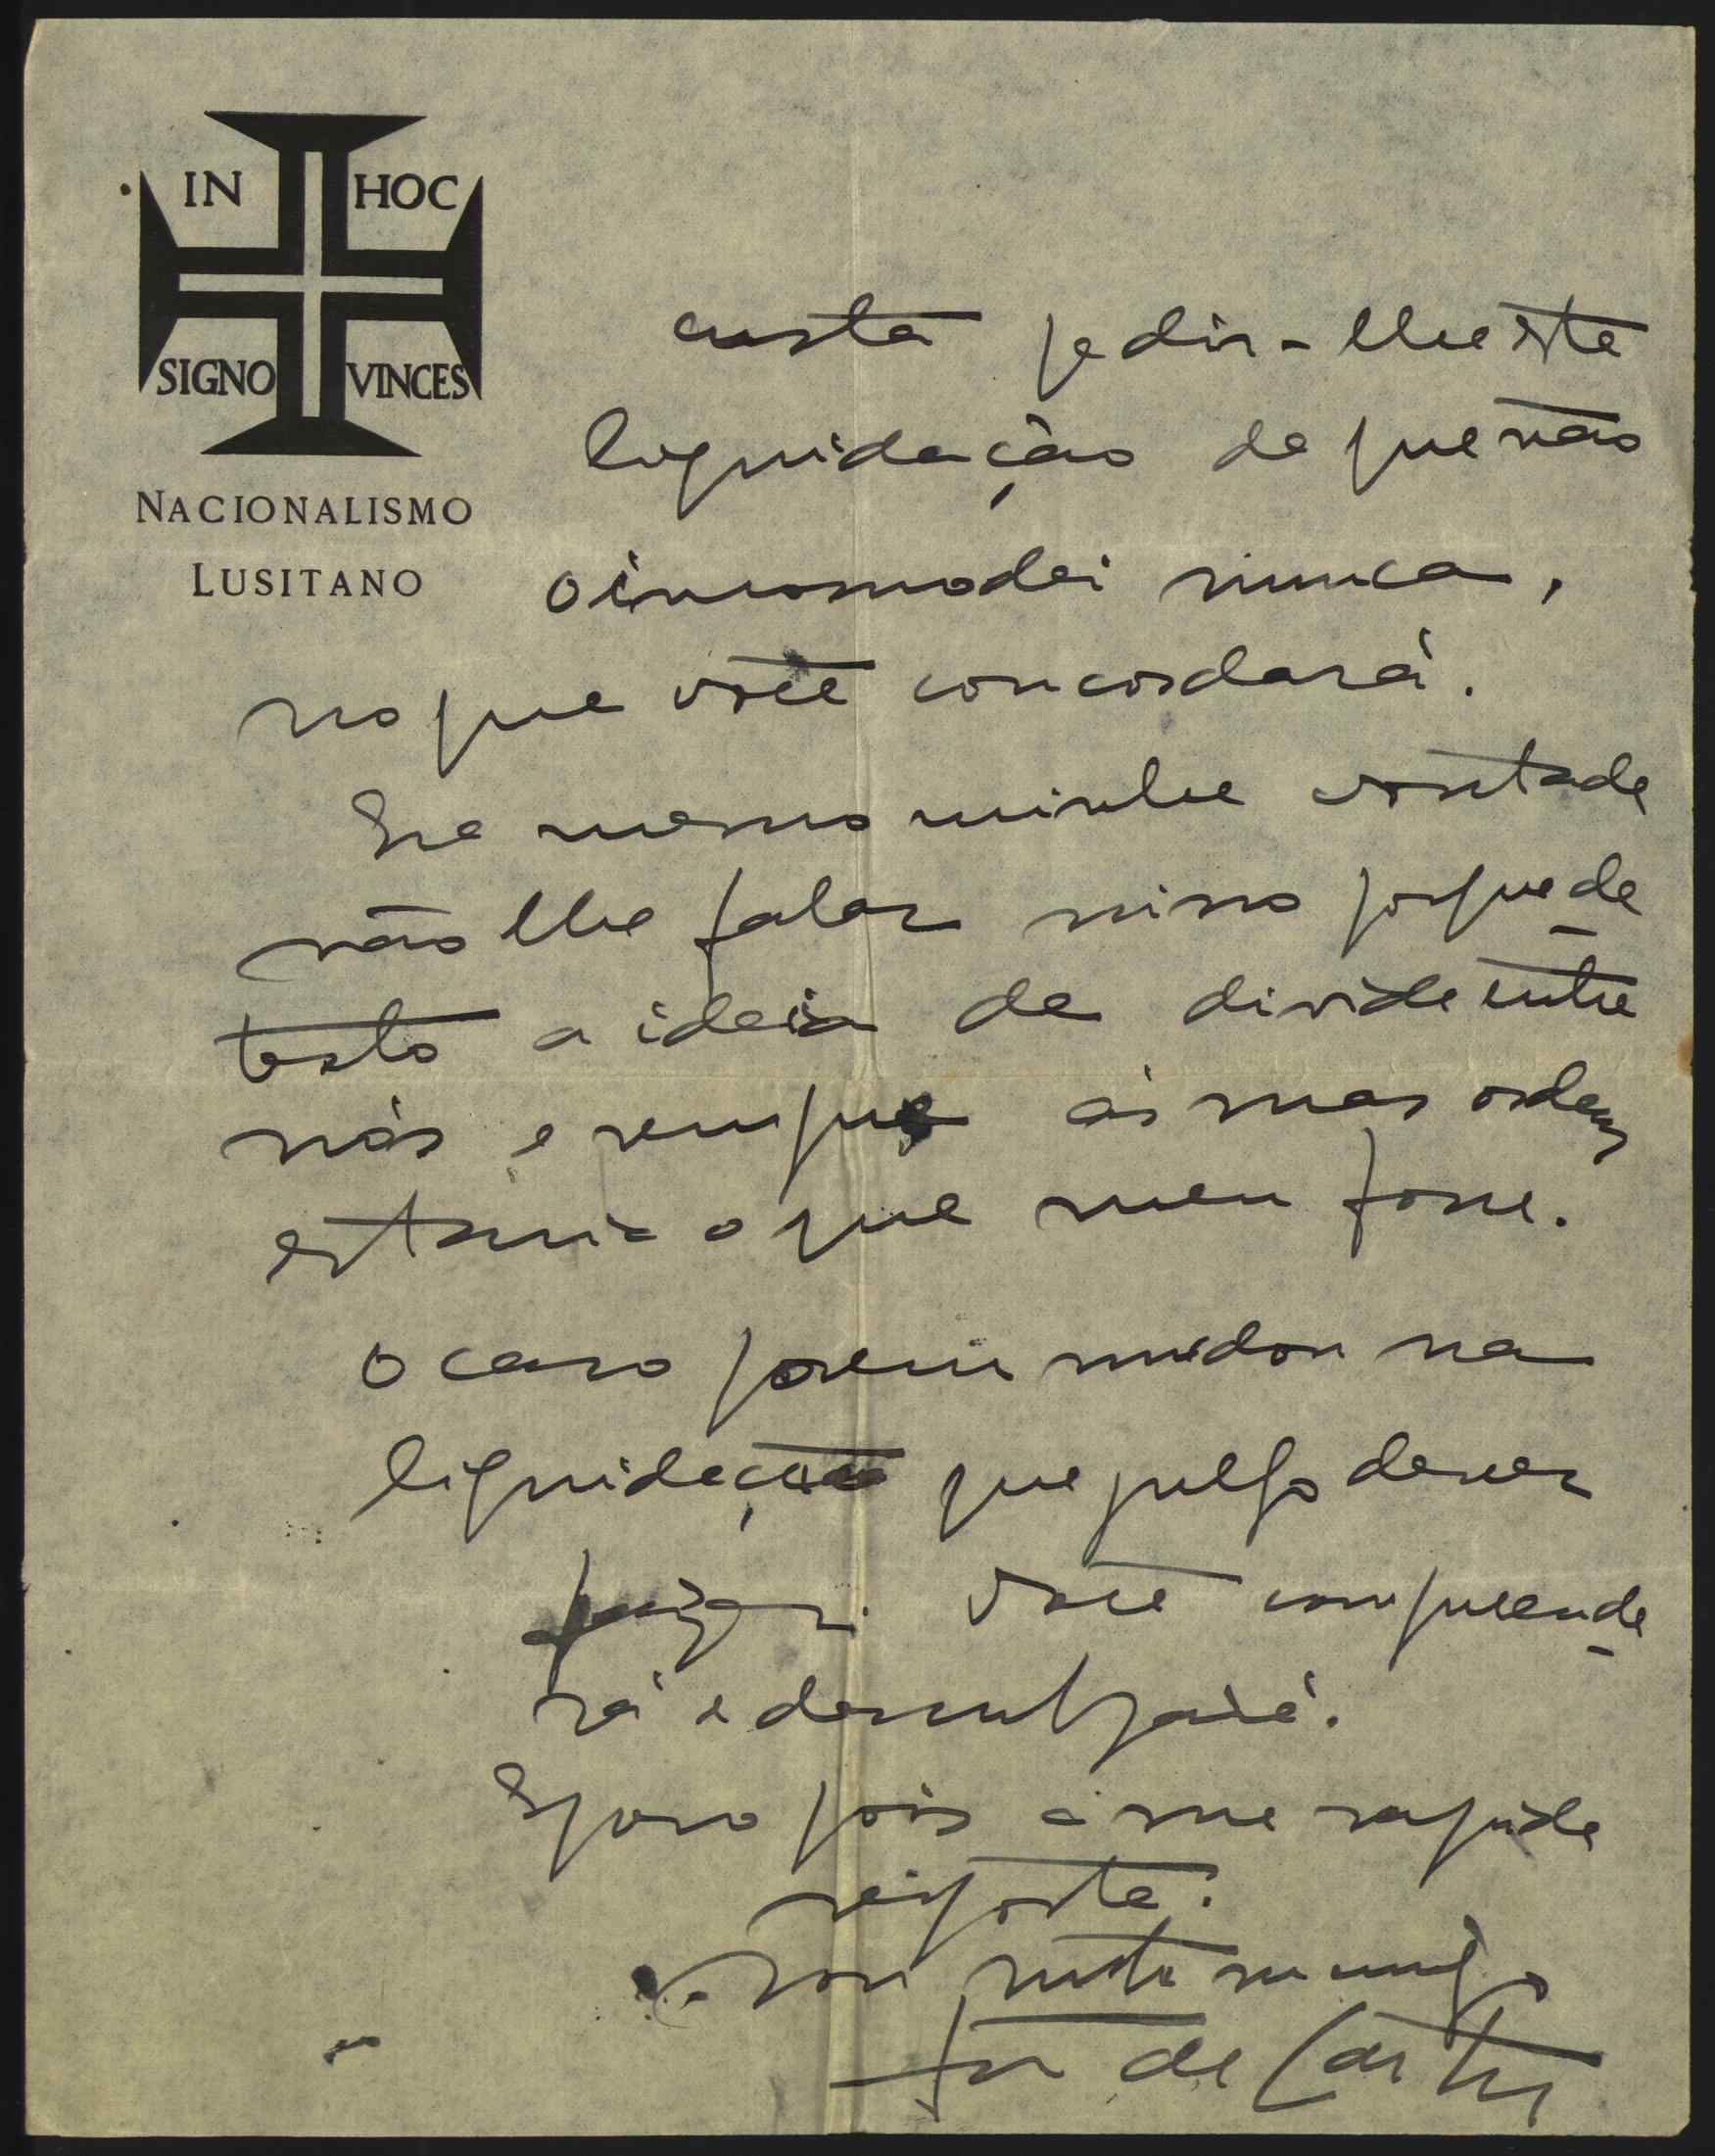 IN HOC
SIGNO VINCES
NACIONALISMO
LUSITANO
custa pedir-lhe esta
liquidação de que não
o incomodei nunca,
no que você concordará.
Era mesmo minha vontade
não lhe falar nisso porque de
testo a ideia de divida entre
nós e sempre ás suas ordens
estaria o que meu fosse.
O caso porem mudou na
liquidação que julgo dever
fazer. Você compreende
rá e desculpará.
Espero pois a sua rapida
resposta.
Sou muito seu amigo
de Castro